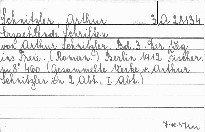 Schnitzler, Arthur 3 A 22134
Schriften
von Arthur Schnitzler. Bd. 3. Der Weg
ins Freie. (Roman.) Berlin 1912 Fischer.
8° 460 (Gesammelte Werke v. Arthur
Schnitzler in 2 Abt. I. Abt.)